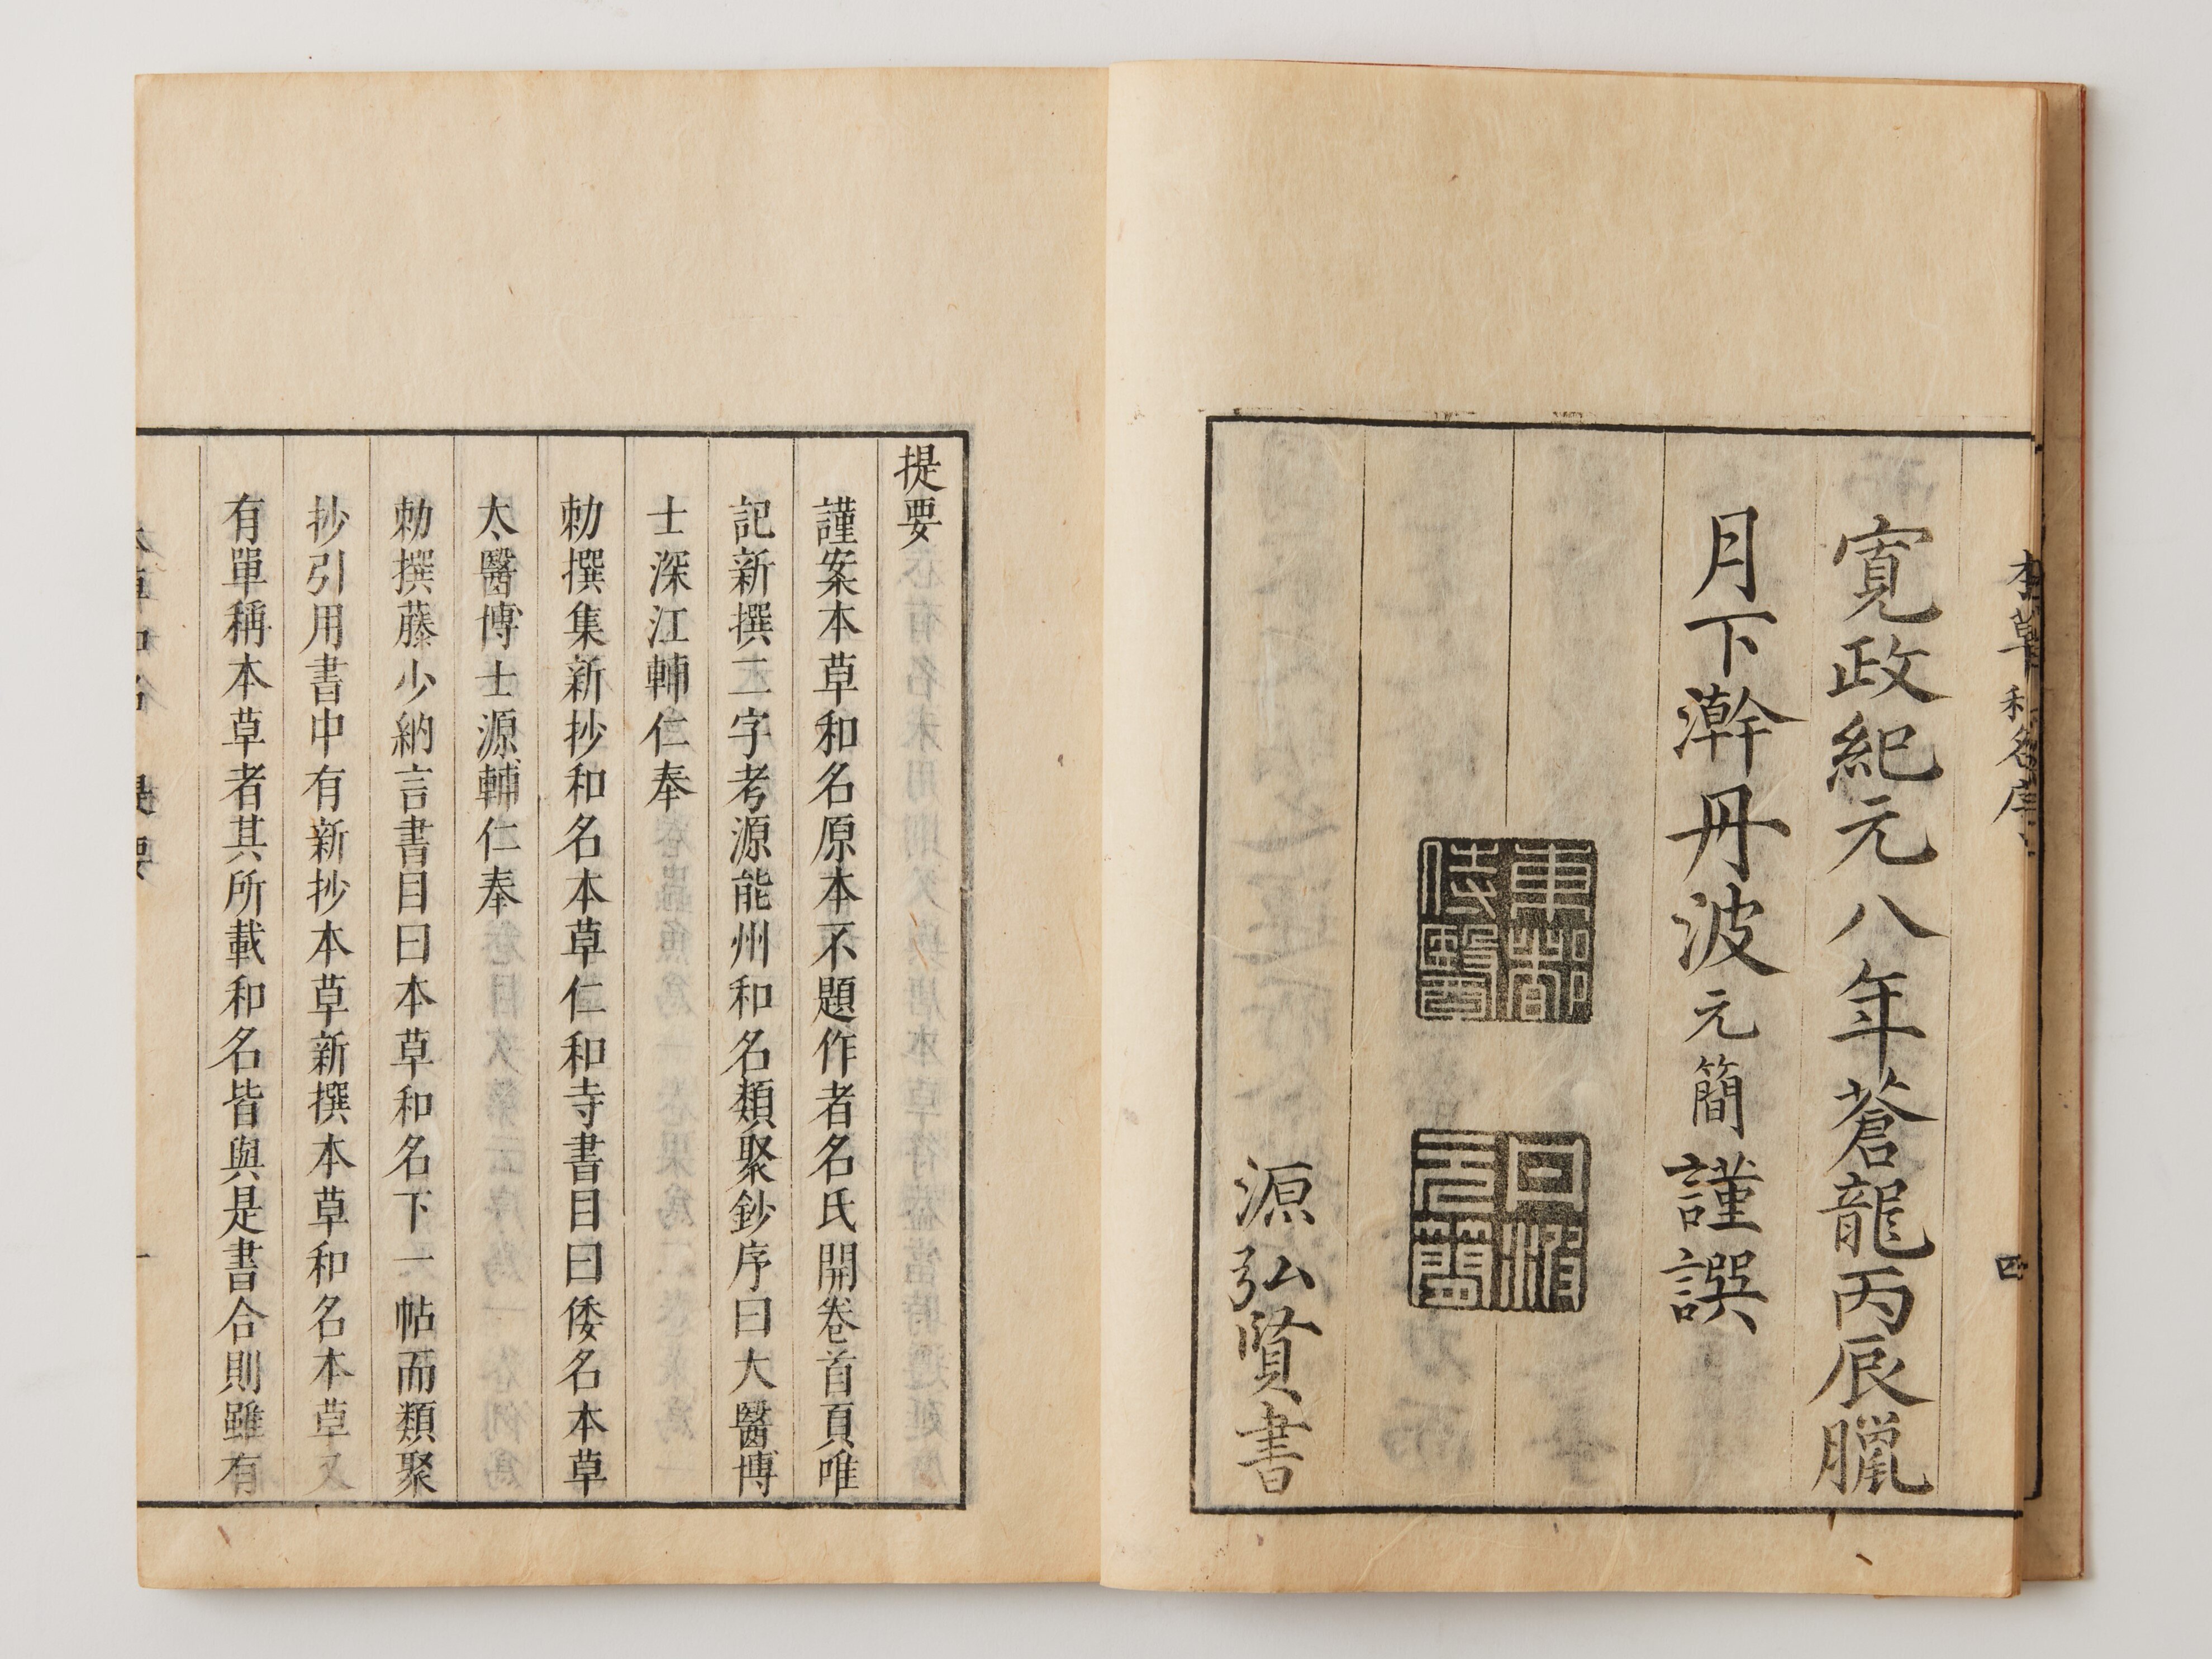 本草和名序
四
寛政紀元八年蒼龍丙辰臘
月下澣丹波元簡謹譔
東都
侍醫
丹波
元簡
源弘賢書
提要
謹案本草和名原本不題作者名氏開卷首頁唯
記新撰二字考源能州和名類聚鈔序曰大醫博
士深江輔仁奉
勅撰集新抄和名本草仁和寺書目曰倭名本草
太醫博士源輔仁奉
勅撰藤少納言書目曰本草和名下一帖而類聚
抄引用書中有新抄本草新撰本草和名本草又
有單稱本草者其所載和名皆與是書合則雖有
本草和名 提要 一